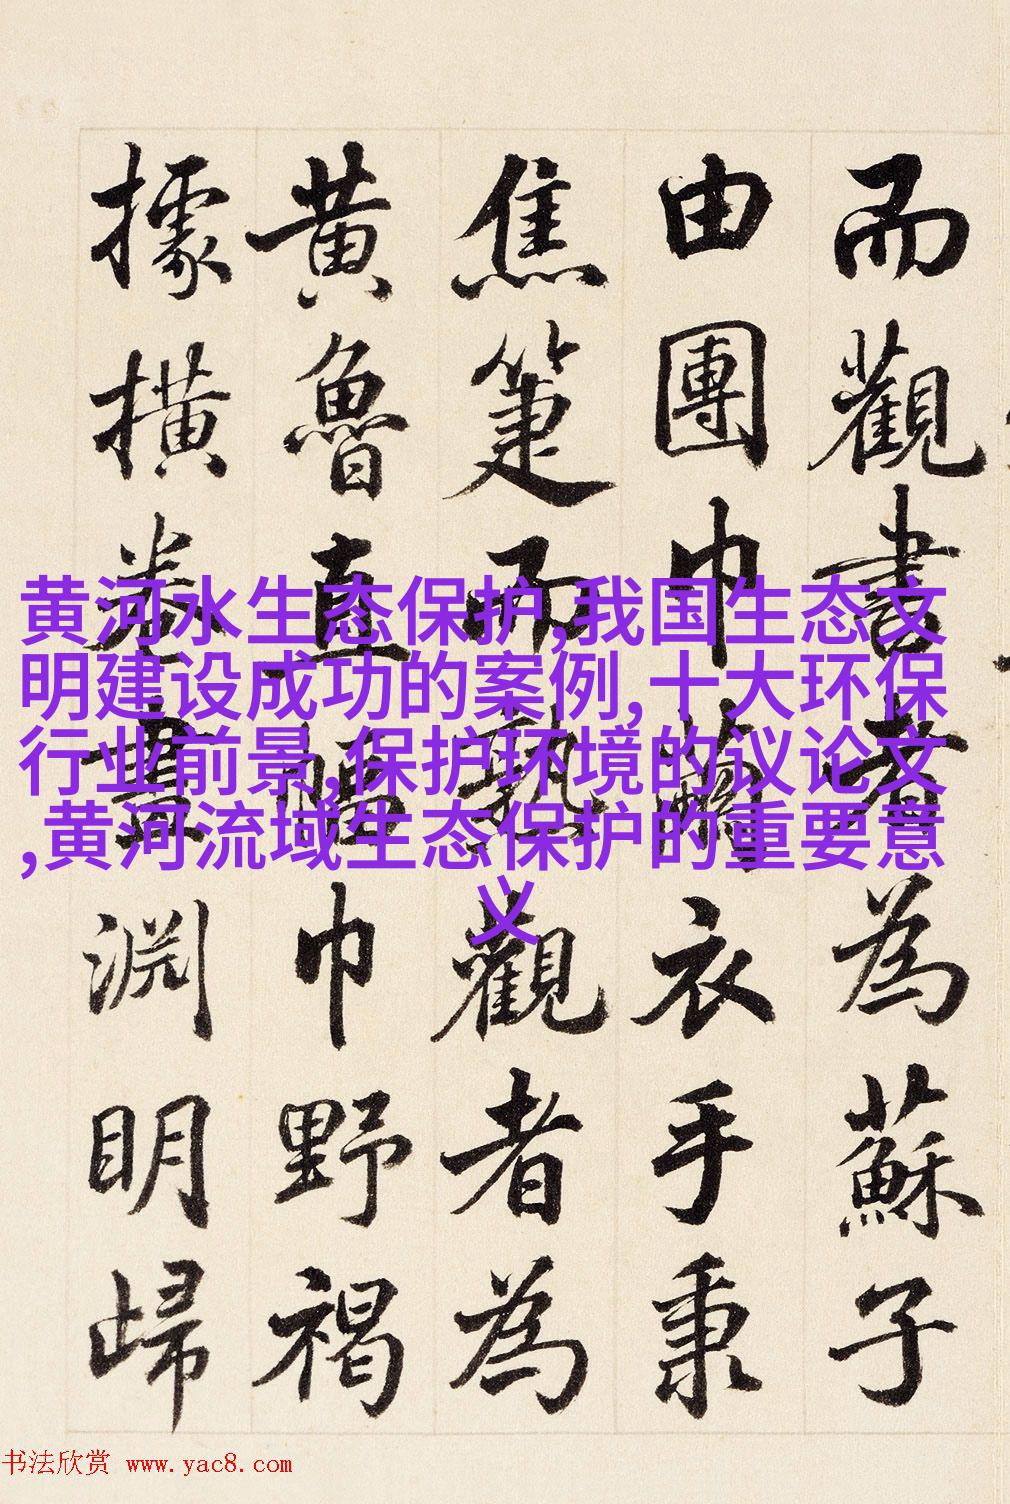 而觀書者為蘇子
由團巾繭衣手秉
焦箑而熟觀者為
黄魯直幅巾野褐
據橫卷畫淵明歸
黄河水生态保护,我国生态文
明建设成功的案例,十大环保
行业前景,保护环境的议论文
,黄河流域生态保护的重要意
义
书法欣赏 www.yac8.com